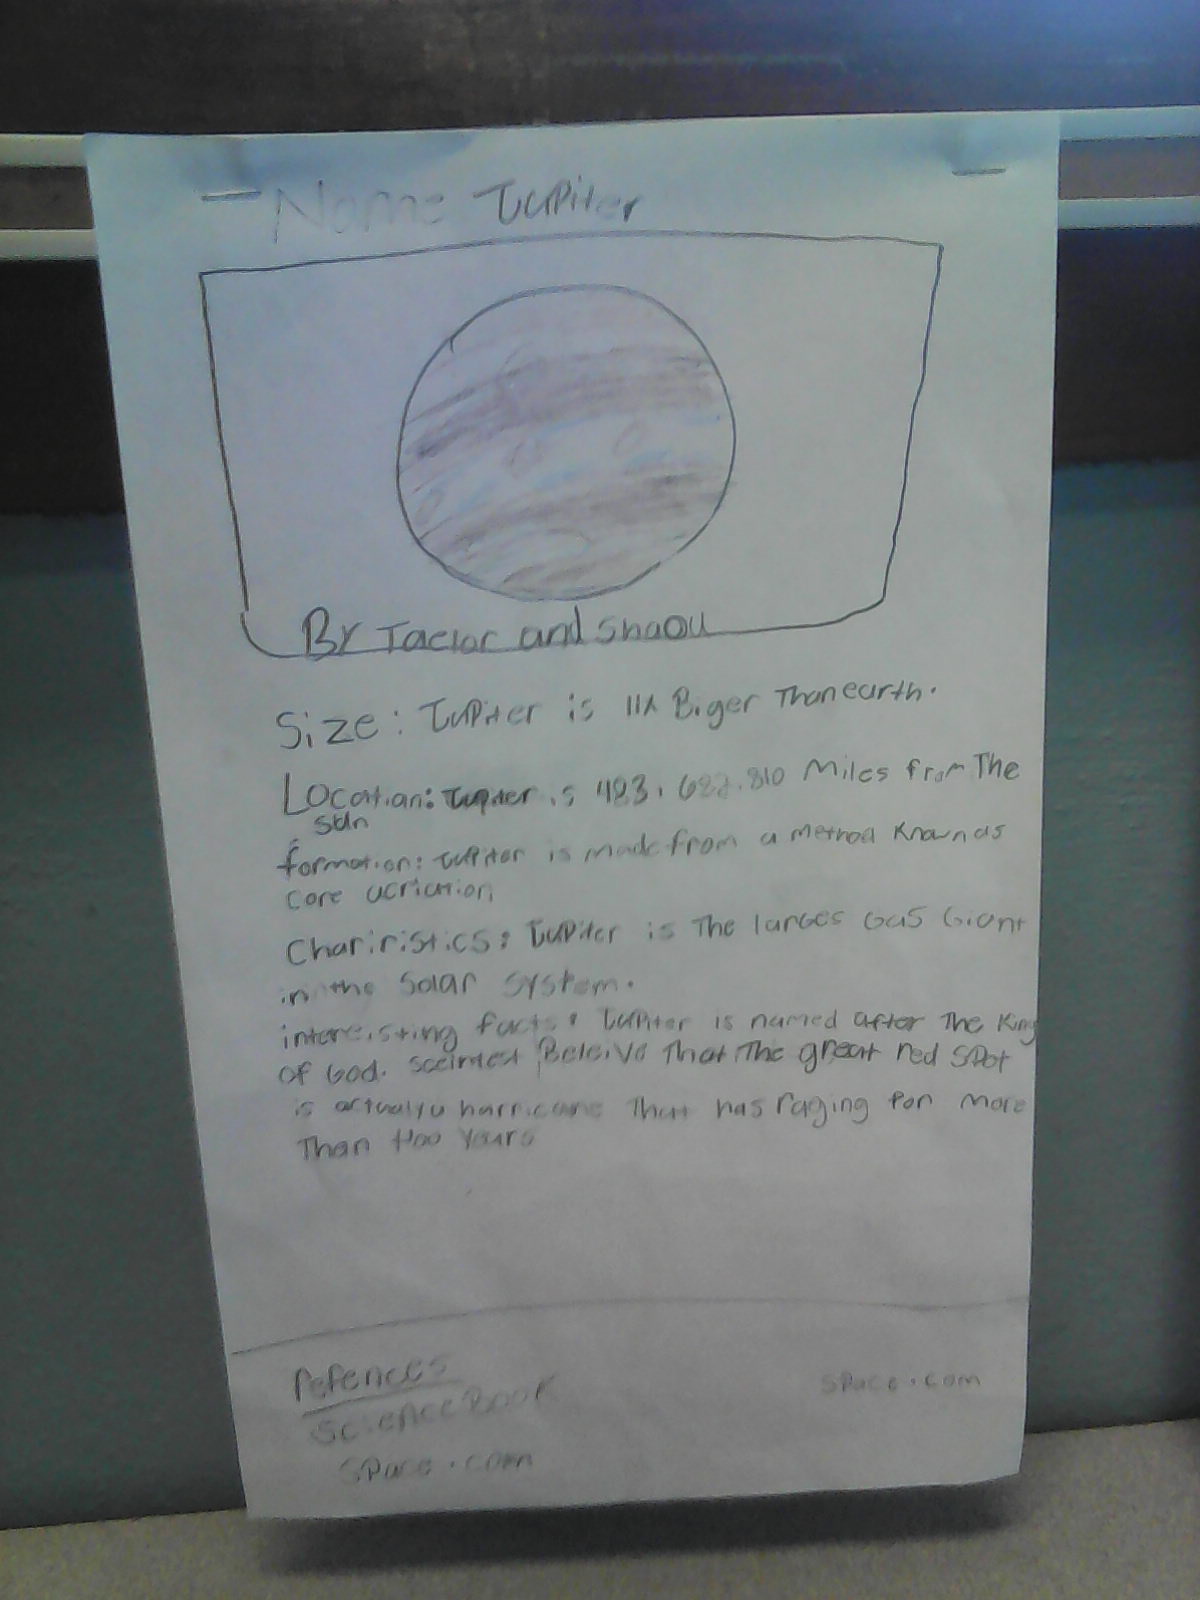 Name Jupiter
By Taelor and Shaou
Size: Jupiter is 11x Biger Than earth.
Location: Jupiter is 483, 682, 810 Miles from The
Sun
formation: Jupiter is made from a method Known as
core acriation
Chariristics: Jupiter is The larges Gas Giant
in the Solar System.
intereisting facts: Jupiter is named after The King
of God. Beleive That The great red Spot
is actualy a harricane That has raging for more
Than years
Refences
Science Book
Space.com
Space.com